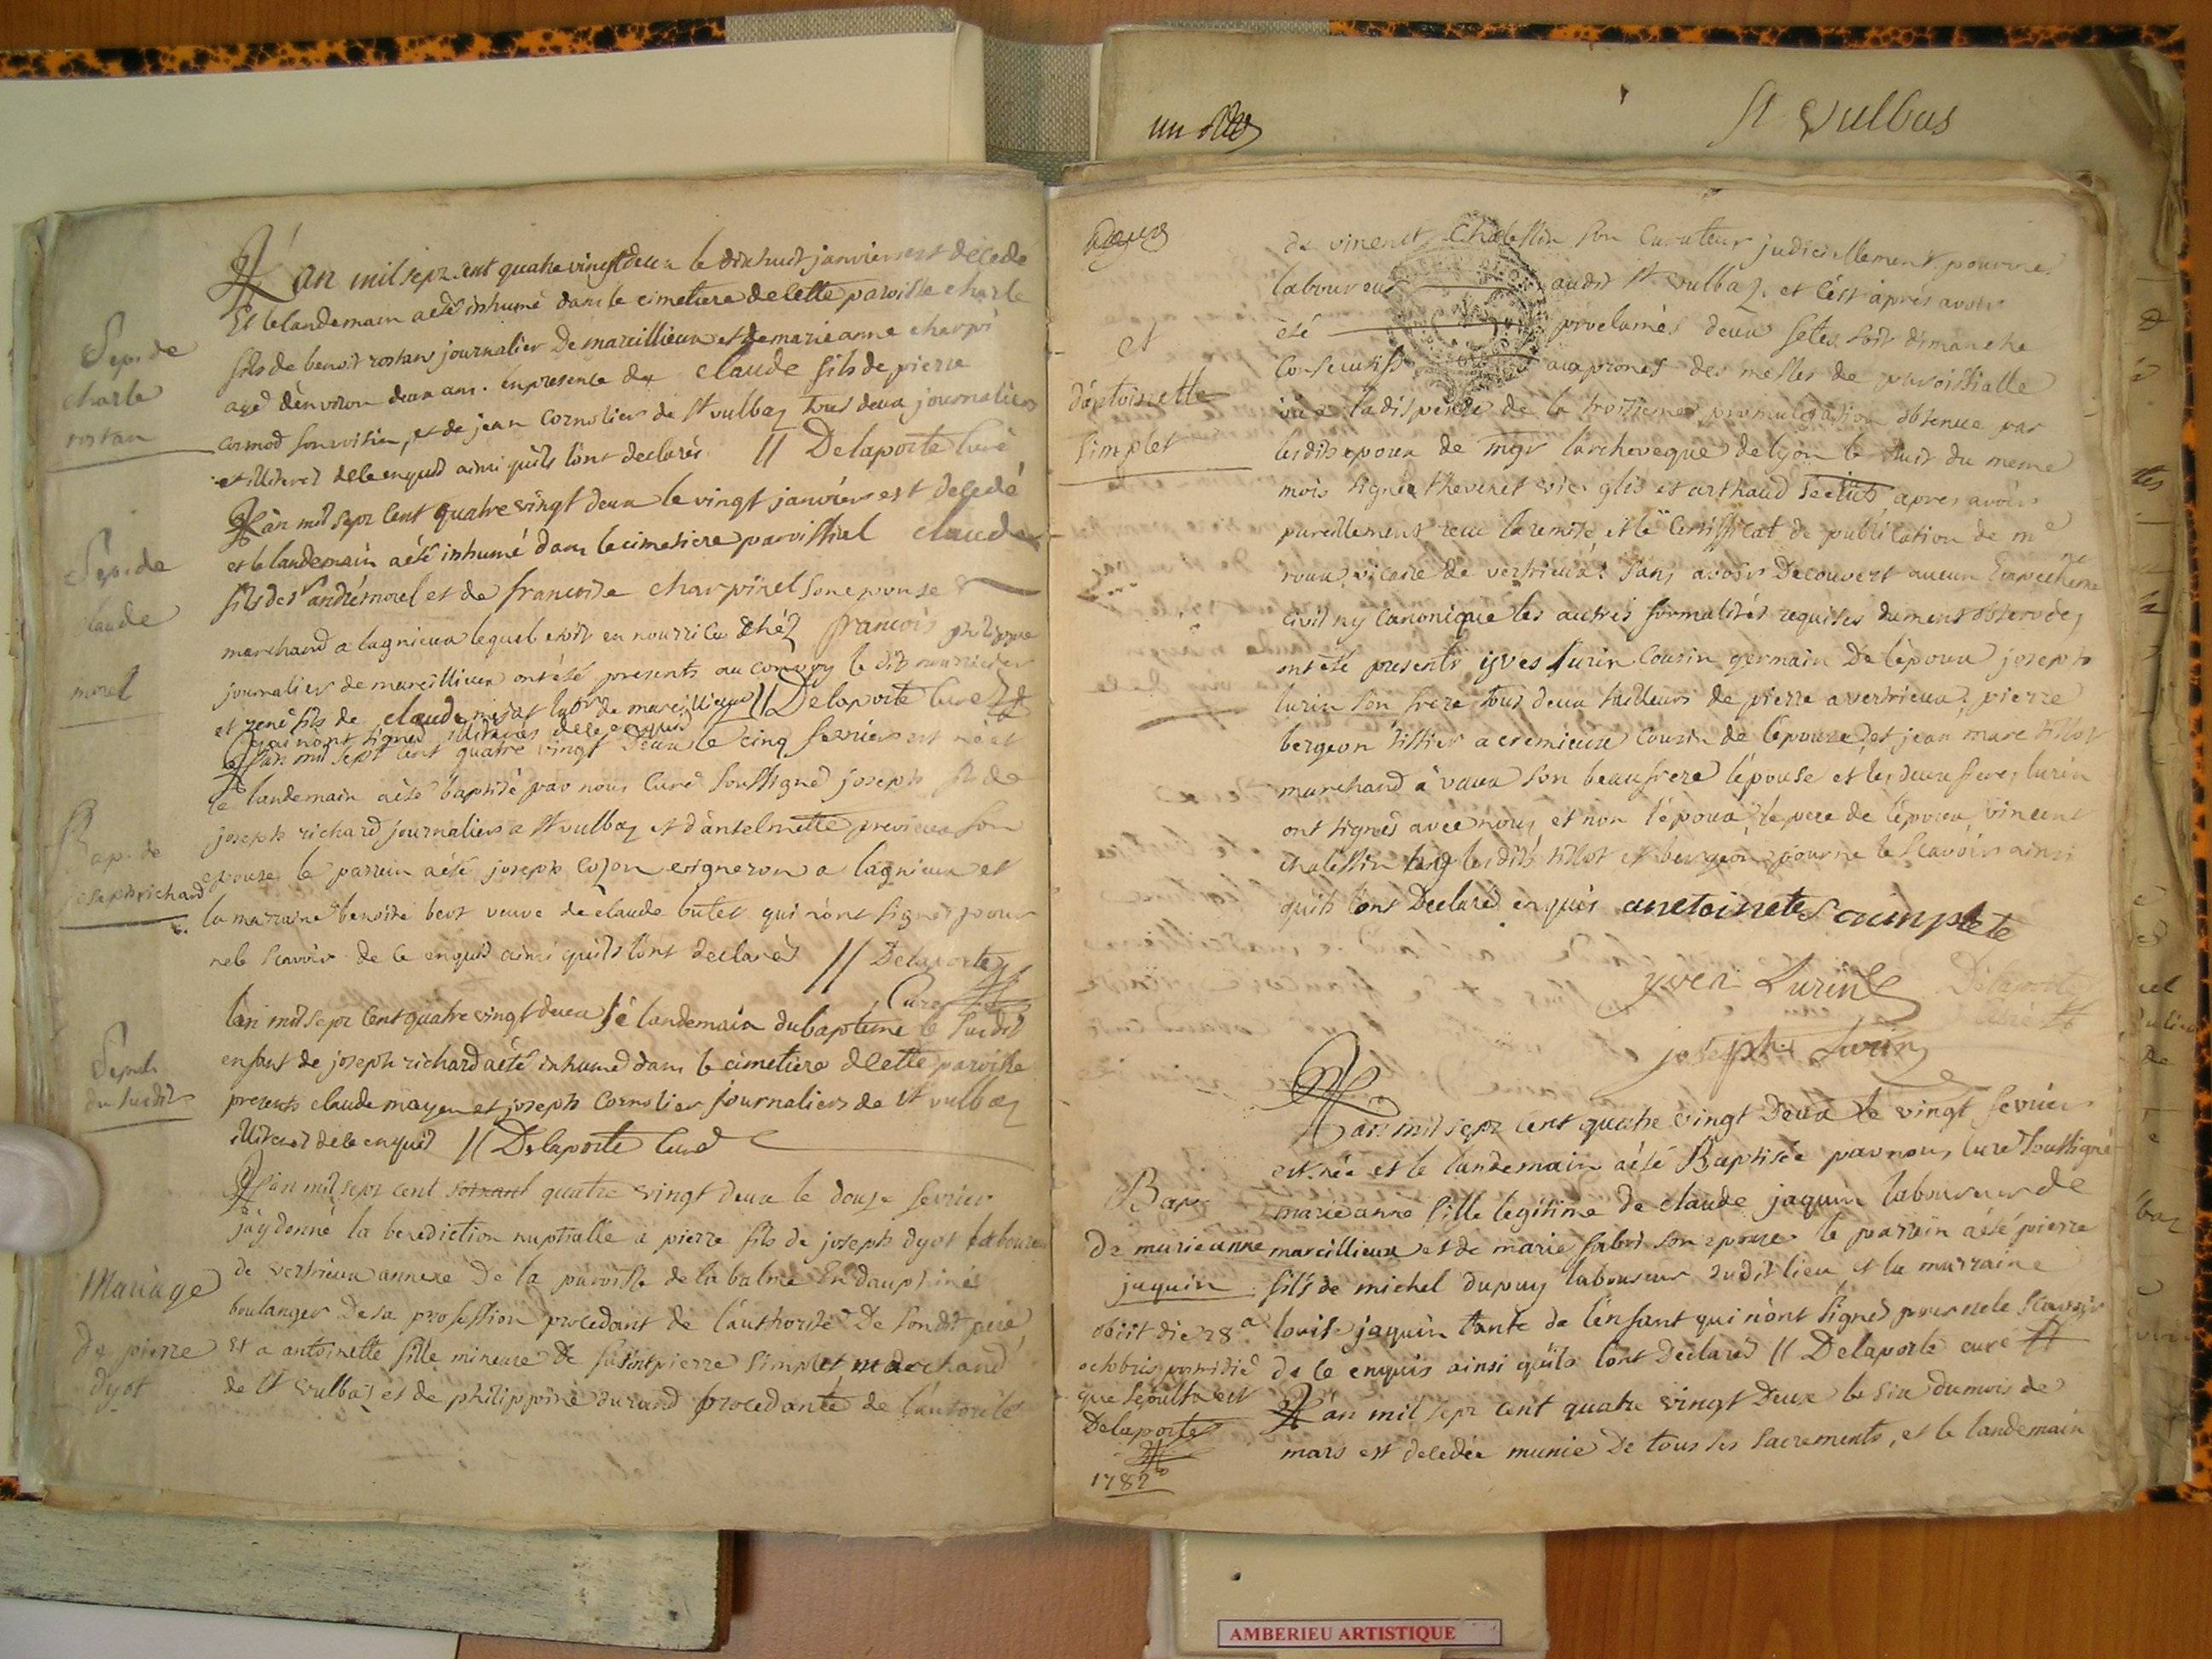 St Vulbas
L'an mil sept cent quatre vingt deux le dix huit janvier est décédé
Et le landemain a eté inhumé dans le cimetiere de cette paroisse charle
fils de benoit rostan journalier De marcillieux et de marie anne charpi
agé d'environ deux ans. En presence de claude fils de pierre
cormod son voisin, et de jean Cornolier de st vulbaz tous deux journaliers
et illiteres de ce enquis ainsi quils l'ont declaré // Delaporte curé
Sep. de
charle
rostan
L'an mil sept cent quatre vingt deux le vingt janvier est décédé
et le landemain a eté inhumé dans le cimetiere paroissial claude
fils de sr andré morel et de francoise charpinel son epouse
marchand a lagnieux lequel etoit en nourrice chéz francois philippe
journalier de marcillieux ont eté presents au convoy le dit nourricier
et rené fils de claude labr de marcillieux // Delaporte curé
qui n'ont signé illiteres de ce enquis
Sep. de
claude
morel
L'an mil sept cent quatre vingt deux le cinq fevrier est né et
le landemain a eté baptisé par nous Curé soussigné joseph fils de
joseph richard journalier a st vulbaz et d'antelmette previeux son
epouse, le parrein a eté joseph cozon vigneron a lagnieux et
la marraine benoite bert veuve de claude butet qui n'ont signés pour
ne le scavoir de ce enquis ainsi quils l'ont declarés // Delaporte
Curé
Bap. de
joseph richard
l'an mil sept cent quatre vingt deux le landemain du bapteme le susdit
enfant de joseph richard a eté inhumé dans le cimetiere de cette paroisse
presents claude mayen et joseph Cornolier journaliers de st vulbaz
illiteres de ce enquis // Delaporte Curé
Sepul.
du susdit
L'an mil sept cent soixant quatre vingt deux le douze fevrier
j'ay donné la benediction nuptialle a pierre fils de joseph dyot laboureur
de vertrieux annexe De la paroisse de la balme En dauphiné
boulanger De sa profession procedant de l'authorité De son dit pere
Et a antoinette fille mineure De fû sieur pierre simplet marchand
de st vulbaz et de philippine durand procedante de l'autorité
Mariage
De pierre
dyot
de vincent Chalessin son Curateur judiciellement pourvu
laboureur audit st vulbaz. et c'est après avoir
eté proclamés deux fetes soit dimanche
Consecutifs aux prones des messes de paroissialle
vû la dispense de la troisieme promulgation obtenue par
lesdits epoux de mgr l'archeveque de lyon le huit du meme
mois signée theveret vic. glé et arthaud secret. apres avoir
pareillement recu la remise et le certifficat de publication de mr
roux vicaire de vertrieux. sans avoir Decouvert aucun Empechement
civil ny canonique les autres formalités requises dument observées
ont eté presents yves lurin Cousin germain De l'epoux joseph
lurin son frere tous deux tailleurs de pierre a vertrieux, pierre
bergeon tissier a cremieux cousin de l'epouse, et jean marc tillot
marchand a vaux son beaufrere l'epouse et les deux freres lurin
ont signés avec nous et non l'epoux, le pere de l'epoux vincent
chalessin lesdits tillot et bergeon pour ne le scavoir ainsi
quils l'ont Declaré enquis anetoinete saimplete
yven Lurin Delaporte
Curé
joseph Lurin
et
d'antoinette
simplet
L'an mil sept cent quatre vingt Deux le vingt fevrier
est née et le landemain a eté Baptisée par nous curé soussigné
marie anne fille legitime de claude jaquin laboureur de
marcillieux et de marie son epouse le parrein a eté pierre
fils de michel dupuy laboureur dudit lieu et la marraine
louise jaquin tante de l'enfant qui n'ont signés pour ne le scavoir
de ce enquis ainsi quils l'ont Declaré // Delaporte curé
Bap.
De marie anne
jaquin
obiit die 28a
octobris
que sepulta est
Delaporte
1782
L'an mil sept cent quatre vingt Deux le six du mois de
mars est decedée munie De tous ses sacrements, et le landemain
AMBERIEU ARTISTIQUE